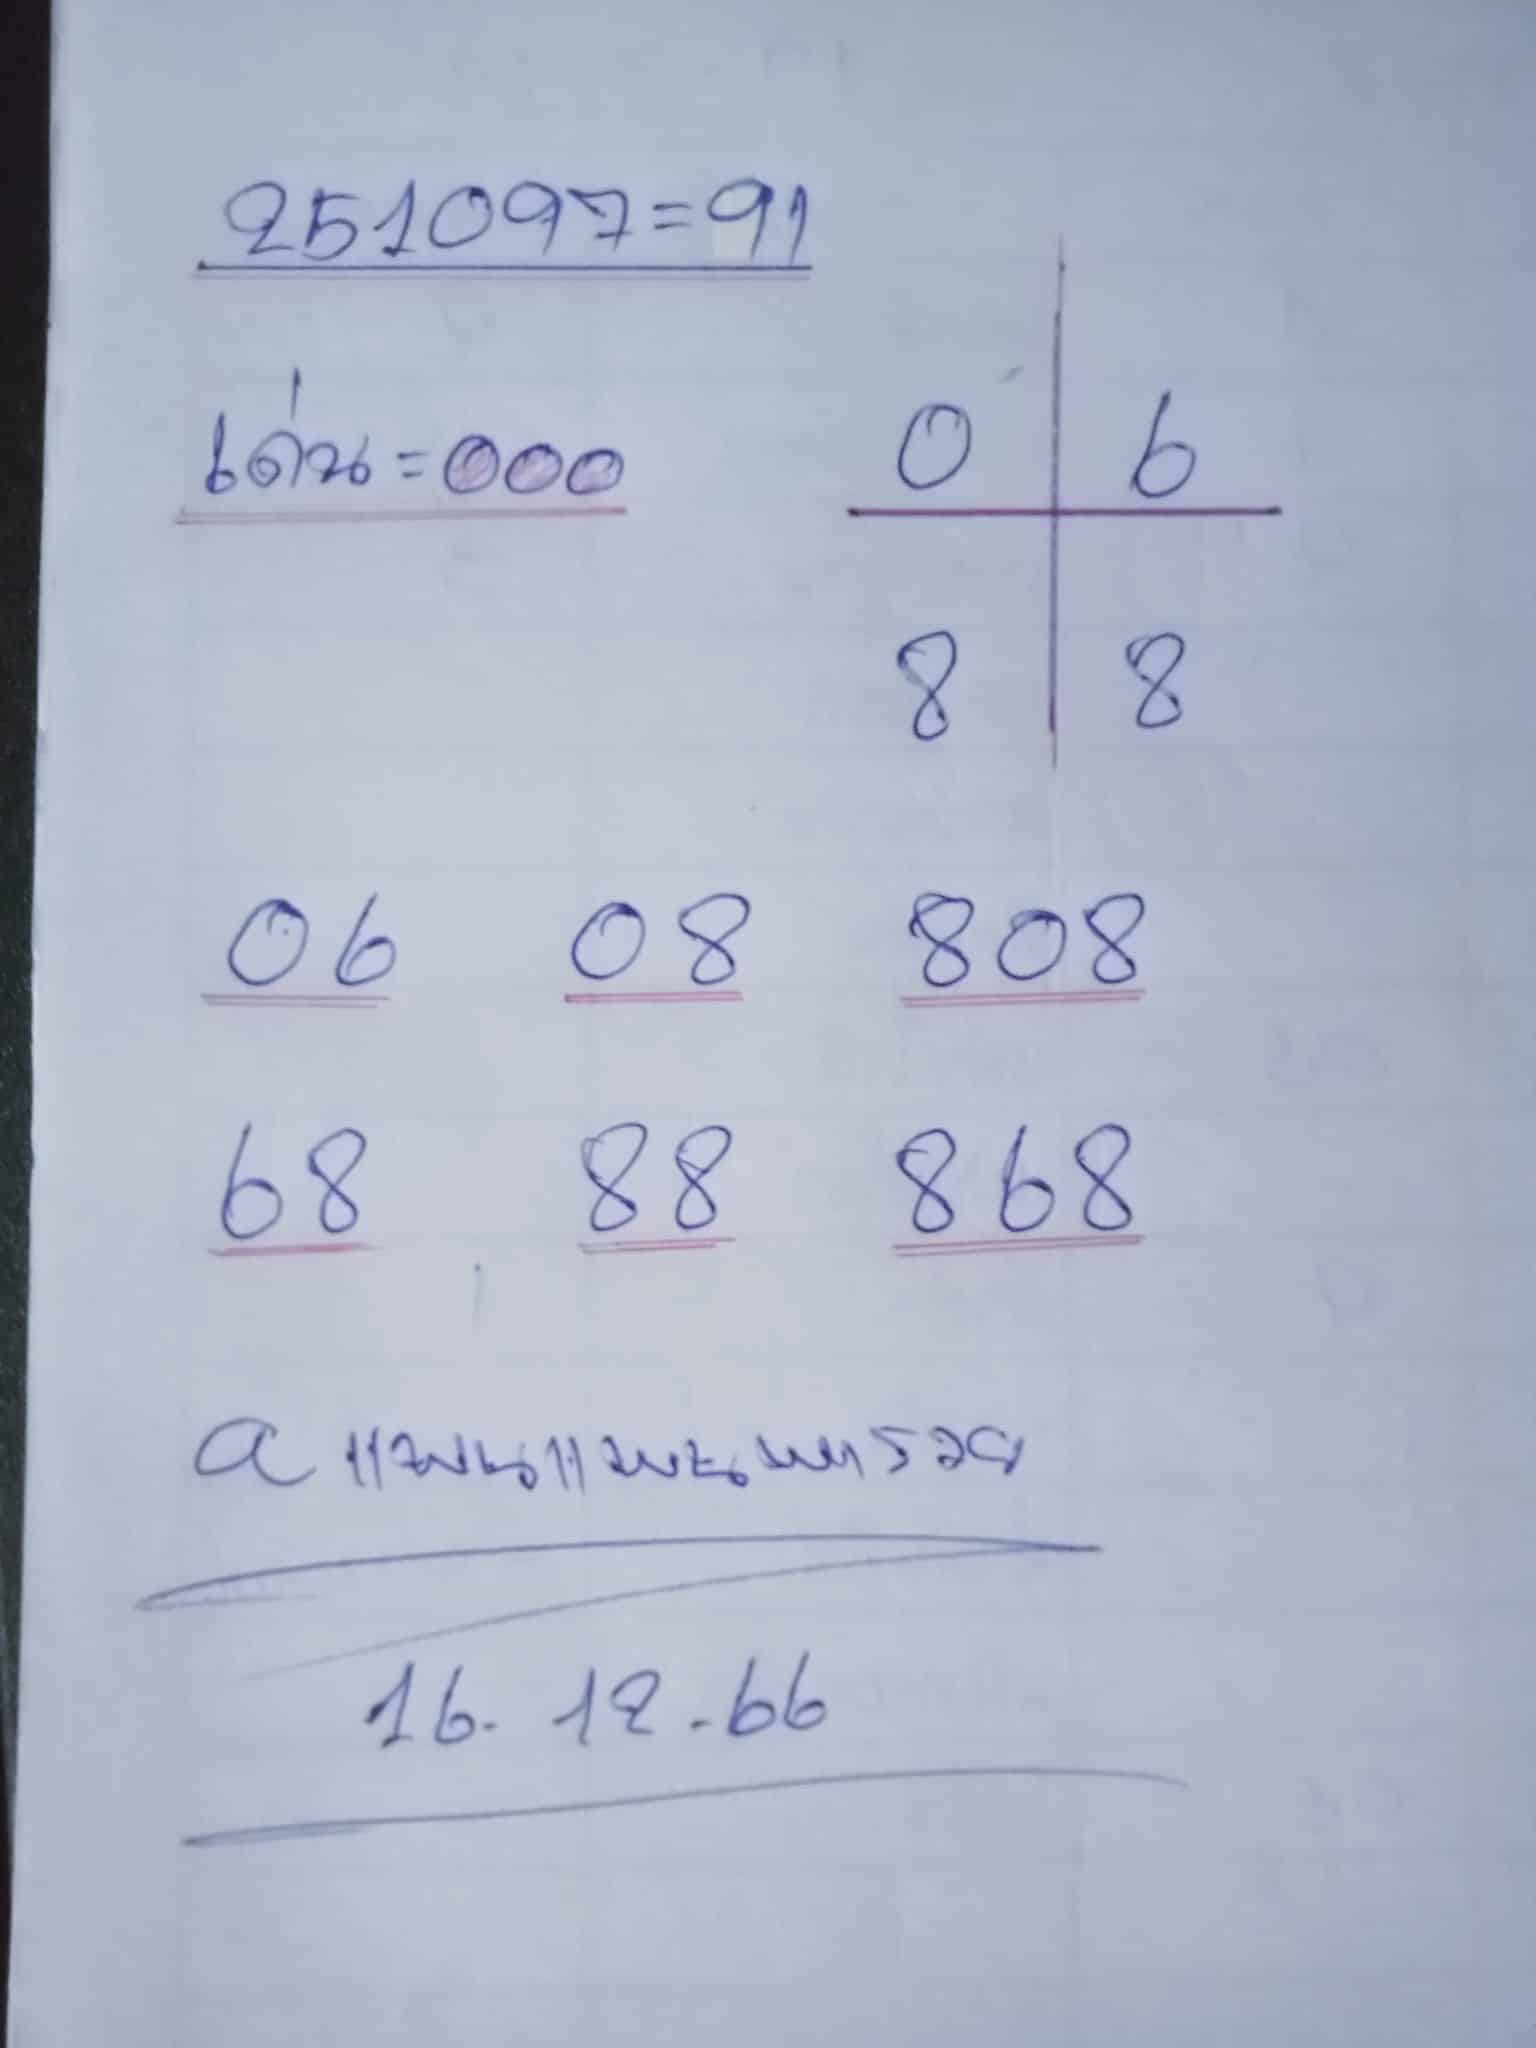 251097=91
เด่น=000
0 6
8 8
06 08 808
68 88 868
a แม่นแม่นพารวย
16.12.66